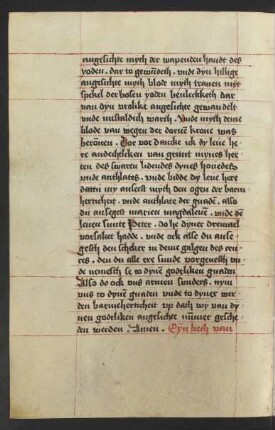 angesichte myth der wapenden handt des
yoden . dar to gewūdoth . vnde dyn hillige
angesichte myth blode myth tranen myt
spekel der bosen yoden
van dyn vrolike angesichte gewandelt
vnde mistaldich warth . Vnde myth deme
blode van wegen der dornē krone was
beronen . Hor vor dancke ick dy leve he
re andechticken van grunt mynes her
ten des swaren lidendes dynes hovedes
vnde anthlattes . vnde bidde dy leve here
dattu my ansest myth den ogen der barm
herticheit . vnde anthlate der gnadē . alßo
du ansegest marien magdalenē . vnde dē
leven sunte Peter . do he dyner dremael
vorsaket hadde . vnde ock alse du anse
gest den scheker in deme galgen des cru
ces . den du alle ere sunde vorgevest vn
de nemest se to dynē godtliken gnaden
Also do ock vns armen sunders . nym
vns to dynē gnaden vnde to dyner wer
den barmeherticheit vp dath wy van dy
nen godtliken angesichte nūmer gesche
den werden . Amen . Eyn